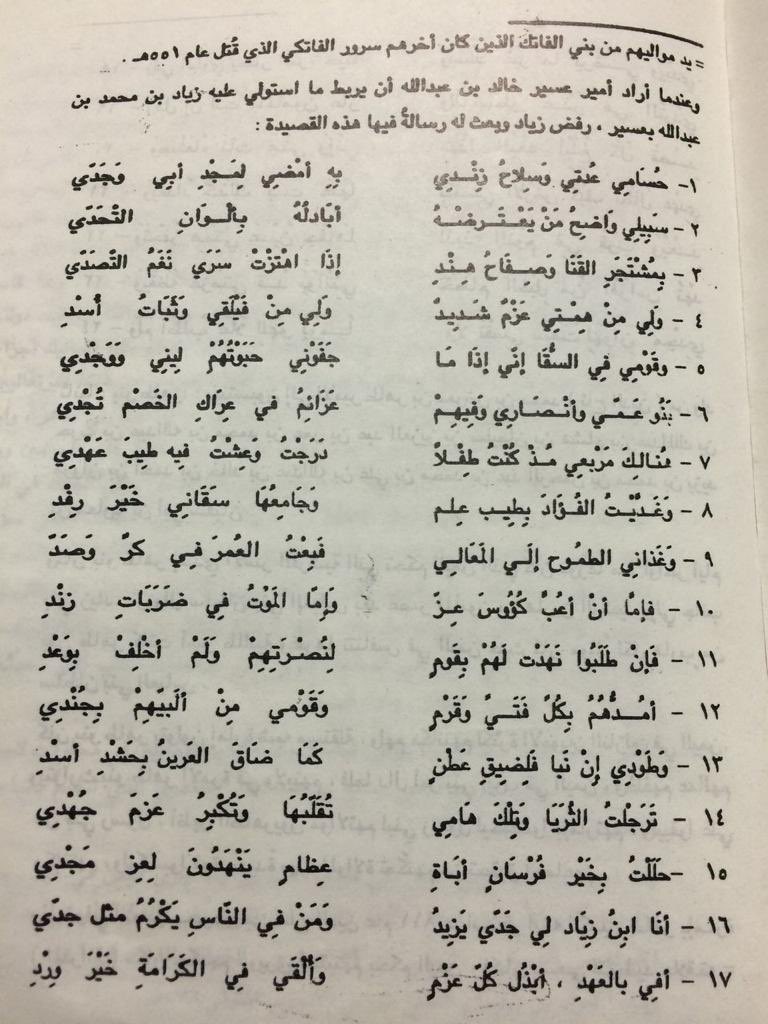 = يد مواليهم من بني الفاتك الذين كان أخرهم سرور الفاتكي الذي قُتل عام ٥٥١هـ .
وعندما أراد أمير عسير خالد بن عبدالله أن يربط ما استولي عليه زياد بن محمد بن
عبدالله بعسير ، رفض زياد وبعث له رسالةً فيها هذه القصيدة :
١- حُسَامِي عُدتِي وَسِلاحُ زِنْدِي بِهِ أمْضِي لِمَجْدِ أبِي وَجَدِّي
٢ - سَبِيلِي وَاضِحُ مَنْ يَعْتَرِضْهُ أبَادلُهُ بِألْوَانِ التَّحَدِّي
٣ - بِمُشْتَجَرِ القَنَا وَصِفَاحُ هِنْدِ إذَا اهْتَزْتْ سَرَي نَغَمُ التّصَدّي
٤ - وَلِي مِنْ هِمْتِي عَزْمُ شَدِيدُ وَلِي مِنْ فَيْلَقِي وَثَبَاتُ أُسْدِ
٥ - وقَوْمِي فِي السُّقَا إنّي إذَا مَا جَفَوْنِي حَبَوْتُهُمْ لِينِي وَوَجْدِي
٦ - بَنُو عَمِّي وأنْصَارِي وَفِيهِمْ عَزَائِمُ في عِرَاكِ الخَصْمِ تُجْدِي
٧ - هُنالِكَ مَرْبعِي مُذْ كُنْتُ طفْلاً دَرَجْتُ وَعِشْتُ فيه طيبَ عَهْدِي
٨ - وَغَذَّيْتُ الفُؤَادَ بِطِيب عِلم وَجَامِعُهَا سَقَانِي خَيْرَ رِفْدِ
٩ - وَغَذَانِي الطمُوح إلَي المَعَالِي فَبِعْتُ العُمرَ فِي كَرَّ وَصَدِّ
١٠ - فإمَّا أنْ أعُبَّ كُؤُوسَ عِزَّ وَإمّا المَوْتُ فِي ضرَبَاتِ زندِ
١١ - فَإنْ طَلَبُوا نَهَدْت لَهُمْ بِقَومِ لِنُصْرَتِهِمْ وَلَمْ أخْلِفْ بِوَعْدِ
١٢ - أمُدُّهُمُ بِكُلِّ فَتَيً وَقَرْمِ وَقَوْمي مِنْ ألَبيّهِمْ بِجُنْدِي
١٣ - وَطَوْدِي إنْ نَبا فَلِضِيقِ عَطْنِ كَمَا ضَاقَ العَرِينُ بِحَشْدِ أسْدِ
١٤ - تَرَجَلْتُ الثُرَيَا وَتِلْكَ هَامِي تُقَلّبُهَا وَتُكْبِرُ عَزمَ جُهْدِي
١٥ -حَلَلْتُ بِخَيْرِ فُرْسَانِ أبَاةِ عِظَامِ يَنْهَدُونَ لِعِزِ مَجْدِي
١٦ - أنَا ابِنُ زِيَاد لِي جَدّي يَزِيدُ وَمَنْ فِي النَّاسِ يَكْرُمُ مثْل جدّي
١٧ - أفِي بالعَهْدِ ، أبْذُل كُلَّ عَزْمِ وَألْقَي فِي الكَرَامَةِ خَيْرَ وِرْدِ